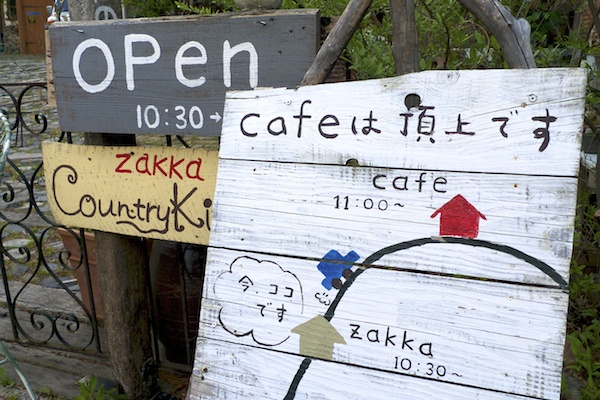 OPen
10:30→
zakka
CountryKi
cafeは頂上です
cafe
11:00~
今、ココ
です
zakka
10:30~